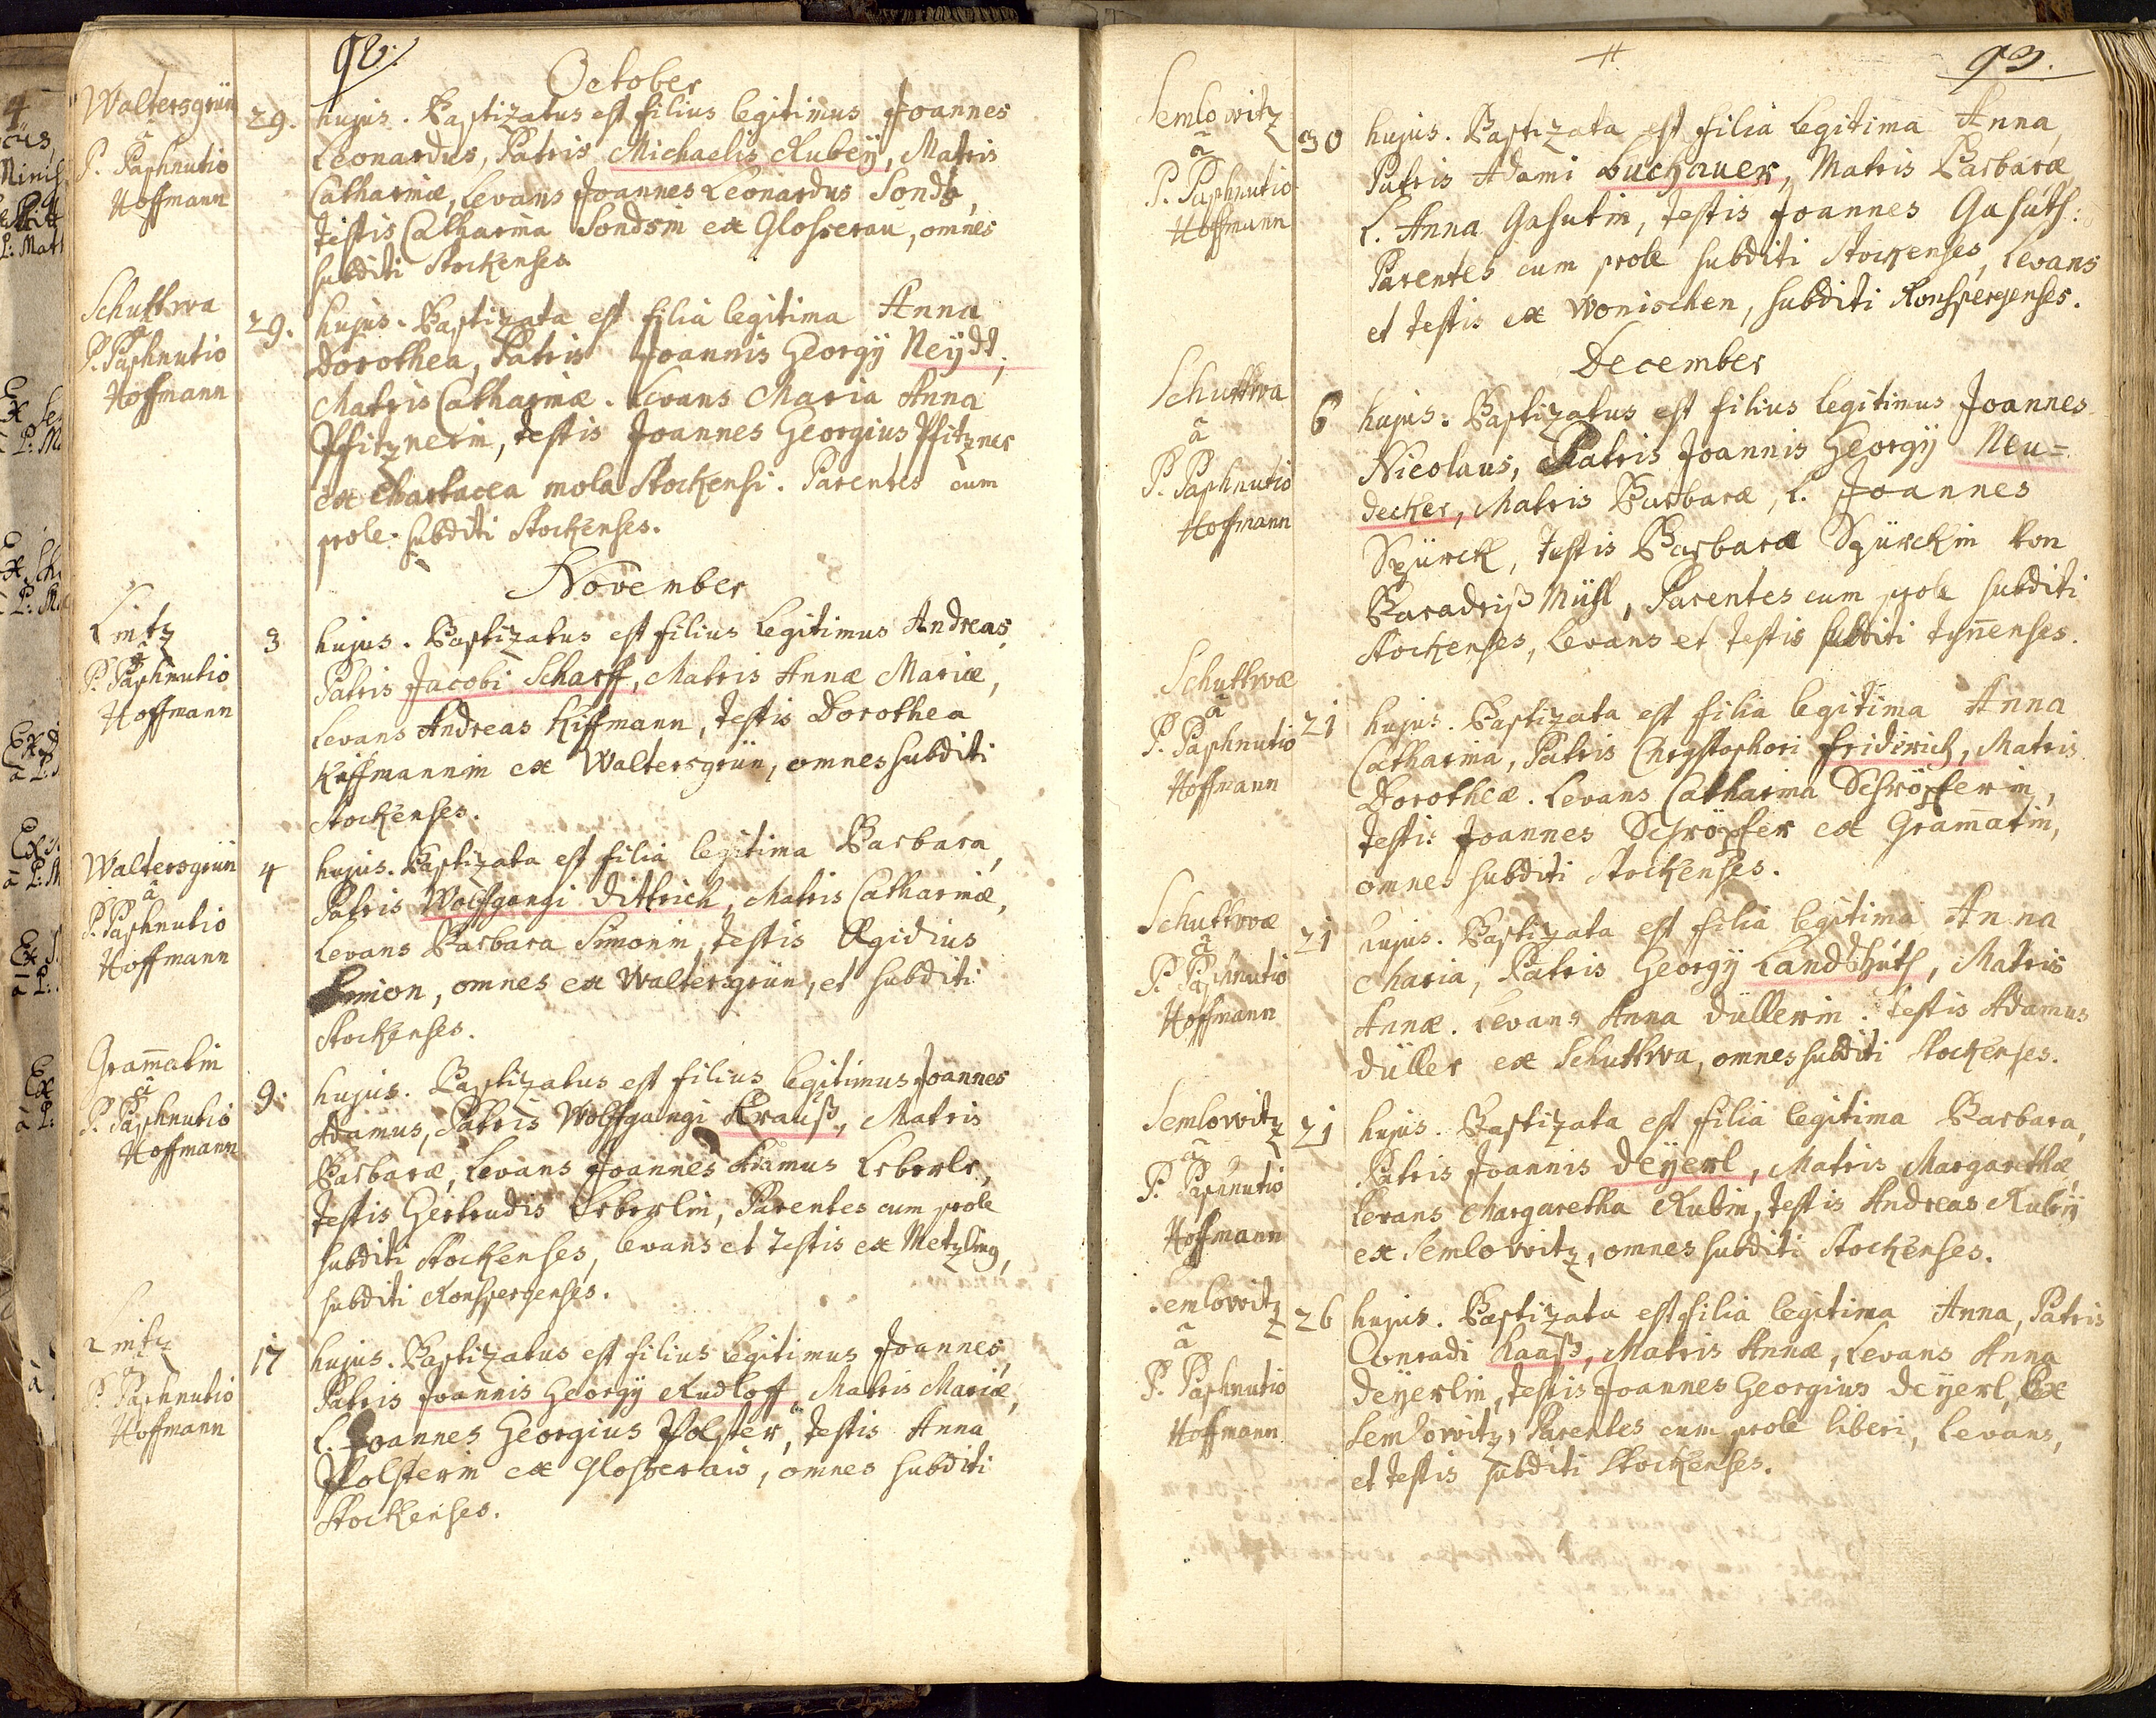 92.
October
Waltersgrün
â
P. Paphnutio
Hoffmann
29. hujus. Baptizatus est filius legitimus Joannes
Leonardus, Patris Michaelis Rubeÿ, Matris
Catharinæ, Levans Joannes Leonardus
testis Catharina ex Glosserau, omnes
subditi Stockenses.
Schuttwa
â
P. Paphnutio
Hoffmann
29. hujus. Baptizata est filia legitima Anna
Dorothea, Patris Joannis Georgÿ Neÿdl,
Matris Catharinæ. Levans Maria Anna
Pfitznerin, testis Joannes Georgius Pfitzner
ex Chartacea mola Stockensi. Parentes cum
prole subditi Stockenses.
November
Linitz
â
P. Paphnutio
Hoffmann
3 hujus. Baptizatus est filius legitimus Andreas,
Patris Jacobi Scharff, Matris Annæ Mariæ,
Levans Andreas Kiffmann, testis Dorothea
Kiffmannin ex Waltersgrün, omnes subditi
Stockenses.
Waltersgrün
â
P. Paphnutio
Hoffmann
4 hujus. Baptizata est filia legitima Barbara,
Patris Wolfgangi Dittrich, Matris Catharinæ,
Levans Barbara Simonin, testis Ægidius
Simon, omnes ex Waltersgrün, et subditi
Stockenses.
Gram̄atin
â
P. Paphnutio
Hoffmann
9. hujus. Baptizatus est filius legitimus Joannes
Adamus, Patris Wolffgangi Krauß, Matris
Barbaræ, Levans Joannes Adamus Leberle,
testis Gertrudis Leberlin, Parentes cum prole
subditi Stockenses, Levans et testis ex Metzling,
subditi Ronspergenses.
Linitz
â
P. Paphnutio
Hoffmann
17 hujus. Baptizatus est filius legitimus Joannes,
Patris Joannis Georgÿ Rudloff, Matris Mariæ,
L. Joannes Georgius Polster, testis Anna
Polsterin ex Glosserau, omnes subditi
Stockenses.
93.
Semlowitz
â
P. Paphnutio
Hoffmann
30 hujus. Baptizata est filia legitima Anna,
Patris Adami Buchauer, Matris Barbaræ
L. Anna Gahutin, testis Joannes Gahuth:
Parentes cum prole subditi Stockenses, Levans
et testis ex Wonischen, subditi Ronspergenses.
December
Schuttwa
â
P. Paphnutio
Hoffmann
6 hujus. Baptizatus est filius legitimus Joannes
Nicolaus, Patris Joannis Georgÿ Neu=
decker, Matris Barbaræ, L. Joannes
Spürck, testis Barbara Spürckin von
Paradriß Mühl, Parentes cum prole subditi
Stockenses, Levans et testis subditi tyn̄enses.
Schuttwæ
â
P. Paphnutio
Hoffmann
21 hujus. Baptizata est filia legitima Anna
Catharina, Patris Chrystophori Friderich, Matris
Dorotheæ. Levans Catharina Schröpferin,
testis Joannes Schröpfer ex Gram̄atin,
omnes subditi Stockenses.
Schuttwæ
â
P. Paphnutio
Hoffmann
21 hujus. Baptizata est filia legitima Anna
Maria, Patris Georgÿ Landshuth, Matris
Annæ. Levans Anna Düllerin. testis Adamus
Düller ex Schuttwa, omnes subditi Stockenses.
Semlowitz
â
P. Paphnutio
Hoffmann
21 hujus. Baptizata est filia legitima Barbara,
Patris Joannis Deÿerl, Matris Margarethæ,
Levans Margaretha Rubin, testis Andreas Rubeÿ
ex Semlowitz, omnes subditi Stockenses.
Semlowitz
â
P. Paphnutio
Hoffmann
26 hujus. Baptizata est filia legitima Anna, Patris
Conradi Haaß, Matris Annæ, Levans Anna
Deÿerlin, testis Joannes Georgius Deÿerl, Ex
Semlowitz, Parentes cum prole liberi, Levans,
et testis subditi Stockenses.